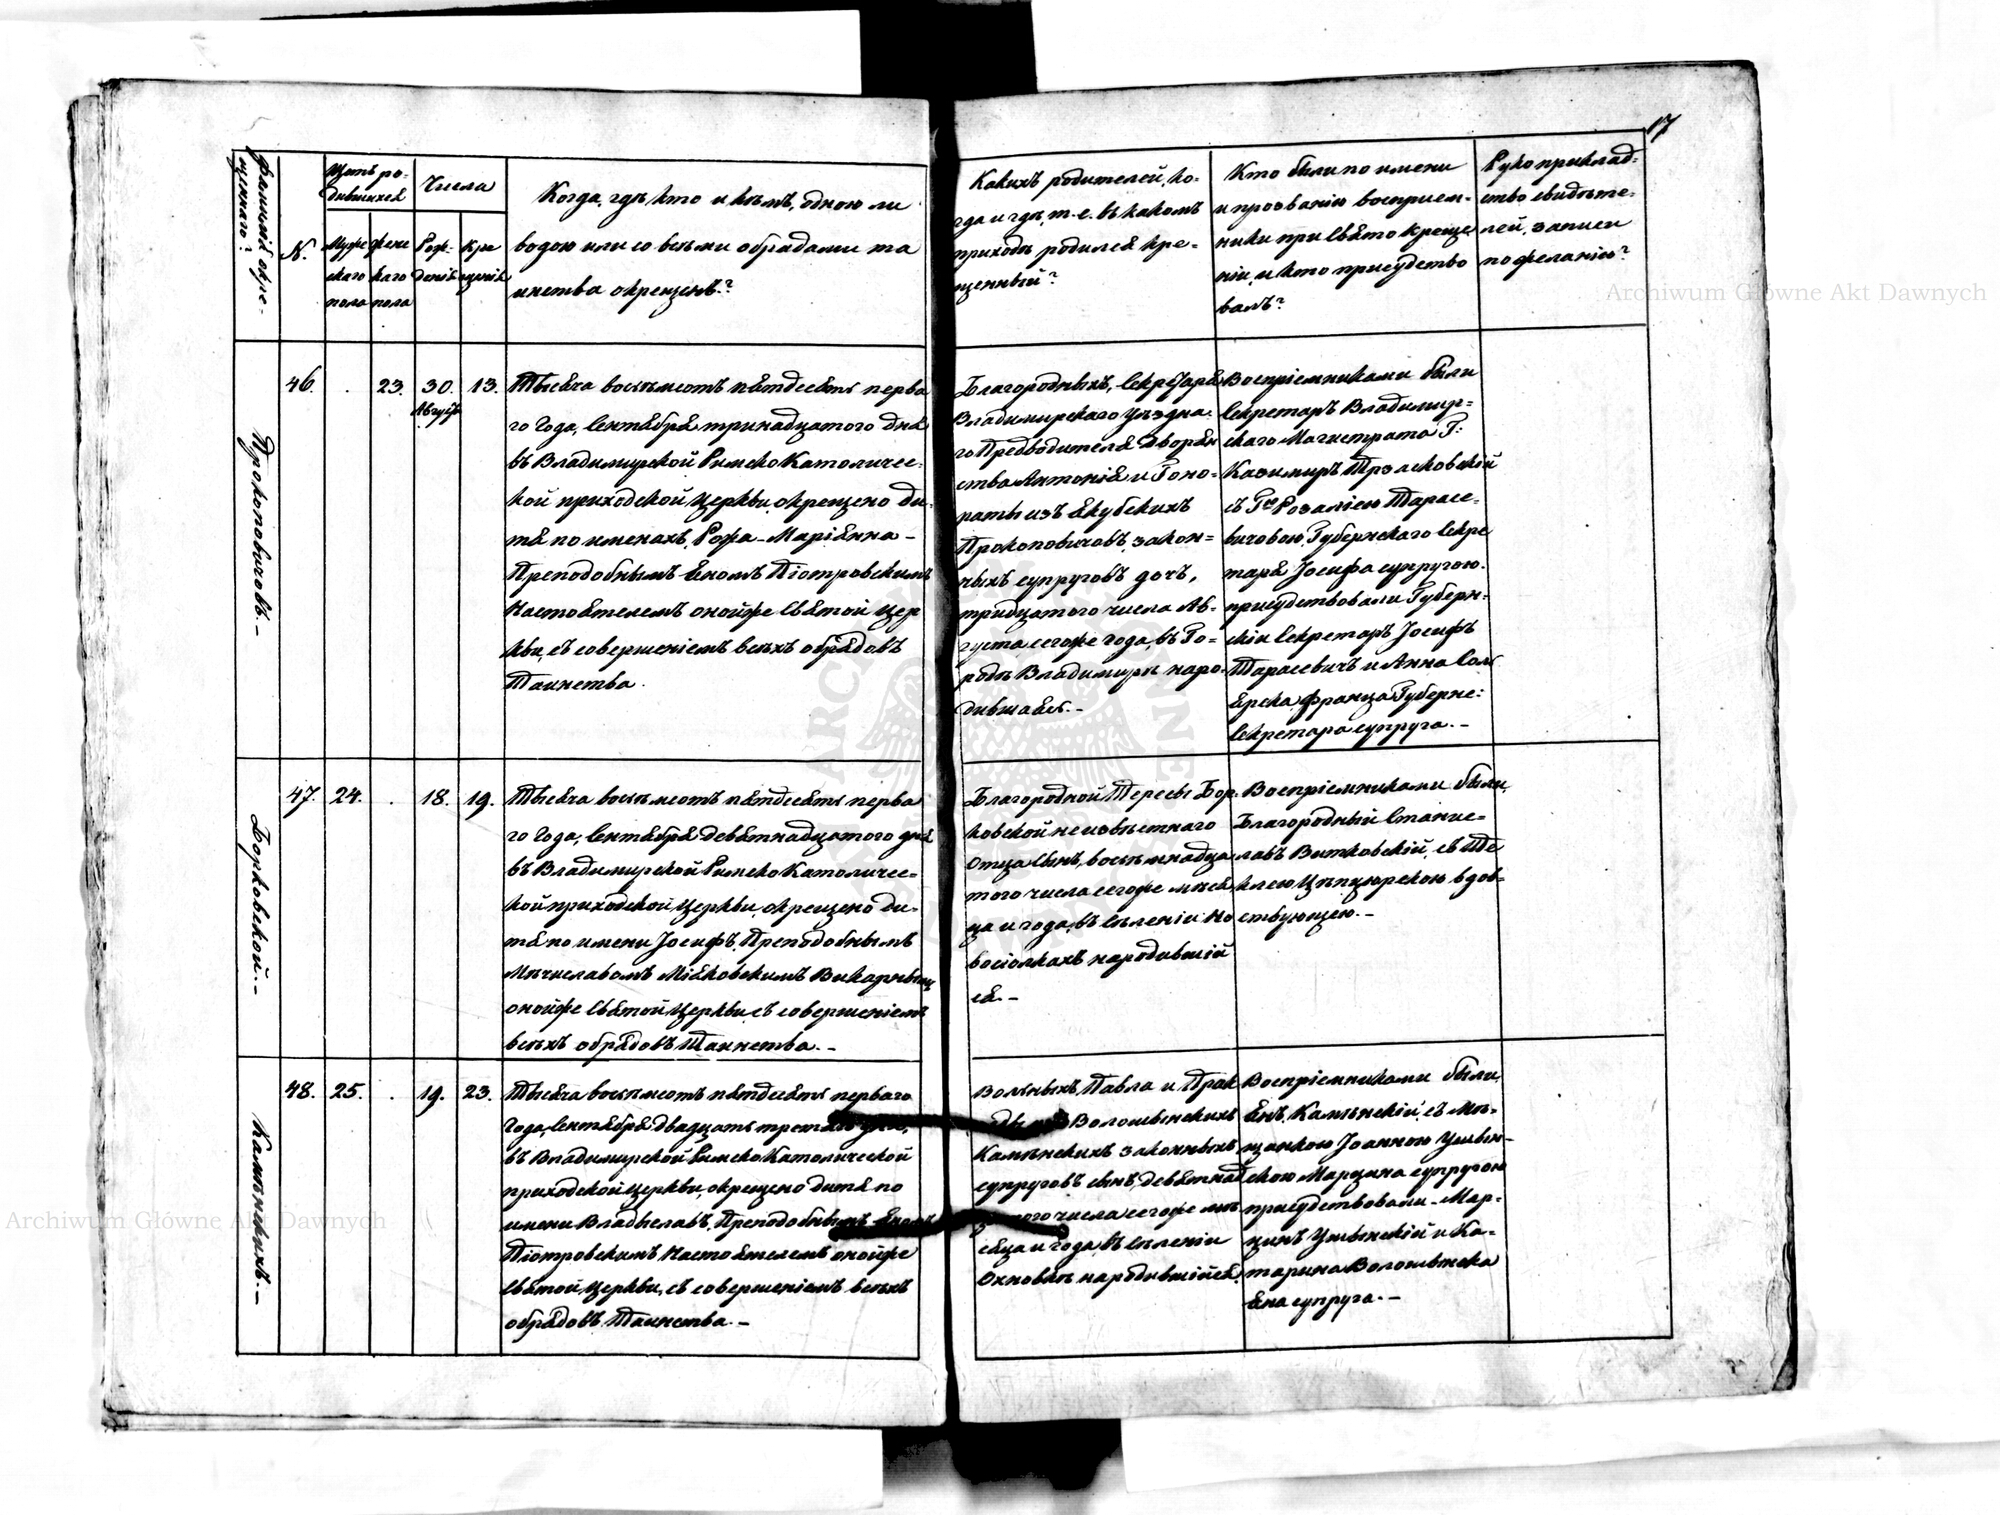 17
Фамилія окре-
щеннаго?
N.
Щетъ ро-
дившихся
Муже
скаго
пола
жене
скаго
пола
Числа
Рож-
денія
кре
щенія
Когда, гдѣ, кто и кѣмъ, одною ли
водою или со всѣми обрядами та
инства окрещенъ?
Какихъ родителей, ко-
гда и гдѣ, т. е. въ какомъ
приходѣ родился кре-
щенный?
Кто были по имени
и прозванію восприем-
ники при Свято Креще
ніи, и кто присудство
валъ?
Рукоприклад-
ство свидѣте-
лей, записи
по желанію?
Прокоповичовъ.-
46.
.
23.
30.
Августъ
13.
Тысяча восьмсотъ пятдесятъ перва
го Года, Сентября тринадцатого дня
въ Владимирской Римско Католичес-
кой приходской церкви, окрещено ди-
тя по именахъ, Рофа-Маріянна-
Преподобнымъ Еномъ Піотровскимъ
Настоятелемъ онойже Святой Цер
кви, съ совершеніемъ всѣхъ обрядовъ
Таинства.
Благородныхъ, Секретаря
Владимирскаго уѣздна-
го Предводителя Дворян
ства Антонія и Гоно-
раты изъ Якубскихъ
Прокоповичовъ, закон-
ныхъ супруговъ дочь,
тридцатого числа Ав-
густа сегоже года, въ Го-
родѣ Владимирѣ наро-
дившаяся.-
Воспріемниками были
Секретаръ Владимир-
скаго Магистрата Г:
Казимиръ Трзасковскій
съ Гею Розаліею Тарасе-
вичовою, Губернскаго Секре
таря Іосифа супругою.
присудствовали Губерн-
скій Секретаръ Іосифъ
Тарасевичъ и Анна Сол
ярска, Франца Губернс:
Секретара супруга.-
Борковской.-
47.
24.
.
18.
19.
Тысяча восьмсотъ пятдесятъ перва
го Года, Сентября девятнадцатого дня
въ Владимирской Римско Католичес-
кой приходской Церкви, окрещено ди-
тя по имени Іосифъ, Преподобнымъ
Мѣчиславомъ Міяковскимъ Викарнымъ
онойже Святой Церкви, съ совершеніемъ
всѣхъ обрядовъ Таинства.-
Благородной Тересы Бор-
ковской неизвѣстнаго
Отца сынъ, восьмнадца
того числа сегоже мѣся
ца и года, въ Селеніи Но
восіолкахъ народившій
ся.-
Воспріемниками были,
Благородный Станис-
лавъ Витковскій, съ Те
клею Цѣпцюрскою вдов-
ствующею.-
Камѣнскихъ.-
48.
25.
.
19.
23.
Тысяча восьмсотъ пятдесятъ перваго
Года, Сентября двадцать третяго дня,
въ Владимирской Римско Католической
приходской церкви, окрещено дитя по
имени Владыславъ, Преподобнымъ Еномъ
Піотровскимъ Настоятелемъ онойже
Святой Церкви, съ совершеніемъ всѣхъ
обрядовъ Таинства.-
Вольныхъ, Павла и Прак
Волошынскихъ
Камѣнскихъ законныхъ
супруговъ сынъ, девятнад
числа сегоже мѣ
сяца и года, въ Селеніи
Охновкѣ народившійся,
Воспріемниками были,
Янъ Камѣнскій, съ Мѣ-
щанкою Іоанною Ушын-
скою Марцина супругою
присудствовали-Мар-
цинъ Ушынскій и Ка-
тарина Волошынска
Яна супруга.-
Archiwum Główne Akt Dawnych
Archiwum Główne Akt Dawnych